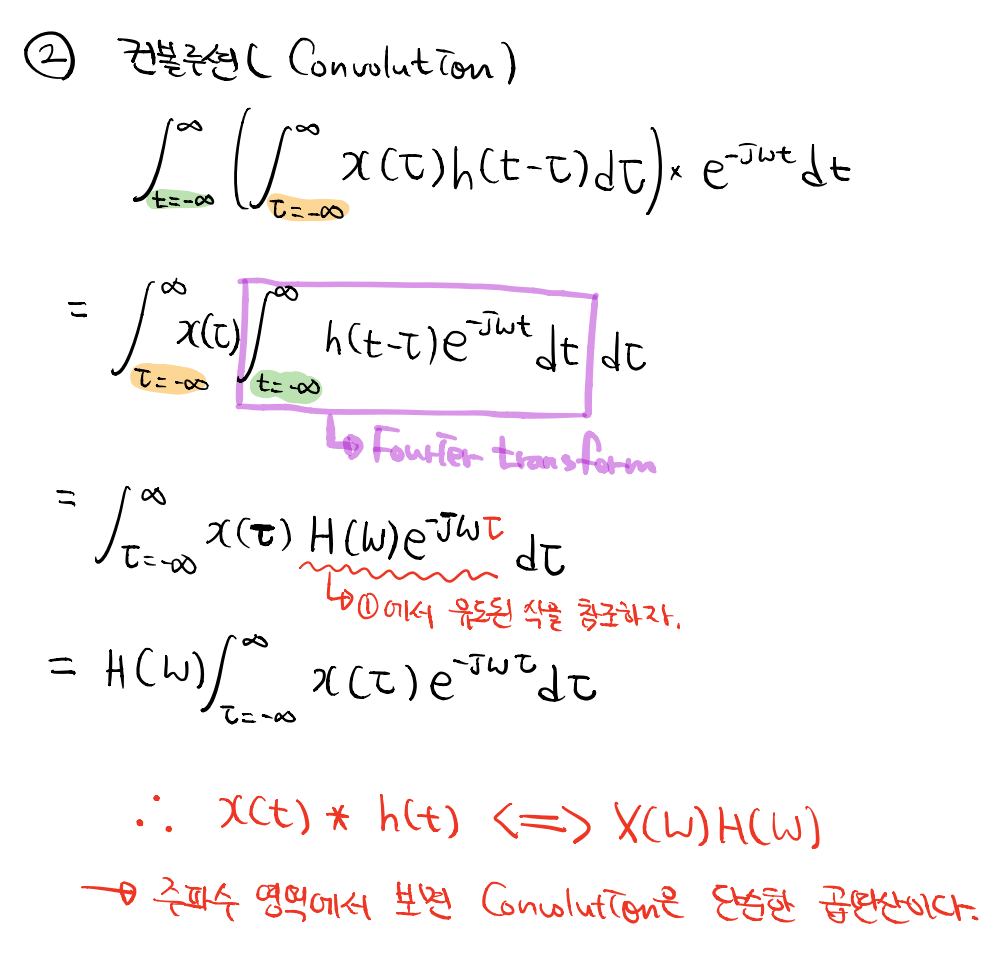 ② 컨볼루션( Convolution)
∫_{t=-∞}^{∞} ( ∫_{τ=-∞}^{∞} x(τ)h(t-τ)dτ ) × e^{-jωt} dt
= ∫_{τ=-∞}^{∞} x(τ) ∫_{t=-∞}^{∞} h(t-τ)e^{-jωt} dt dτ
↳ Fourier transform
= ∫_{τ=-∞}^{∞} x(τ) H(ω)e^{-jωτ} dτ
↳ ①에서 유도된 식을 참조하자.
= H(ω) ∫_{τ=-∞}^{∞} x(τ) e^{-jωτ} dτ
∴ x(t) * h(t) <=> X(ω)H(ω)
→ 주파수 영역에서 보면 Convolution은 단순한 곱딴산이다.